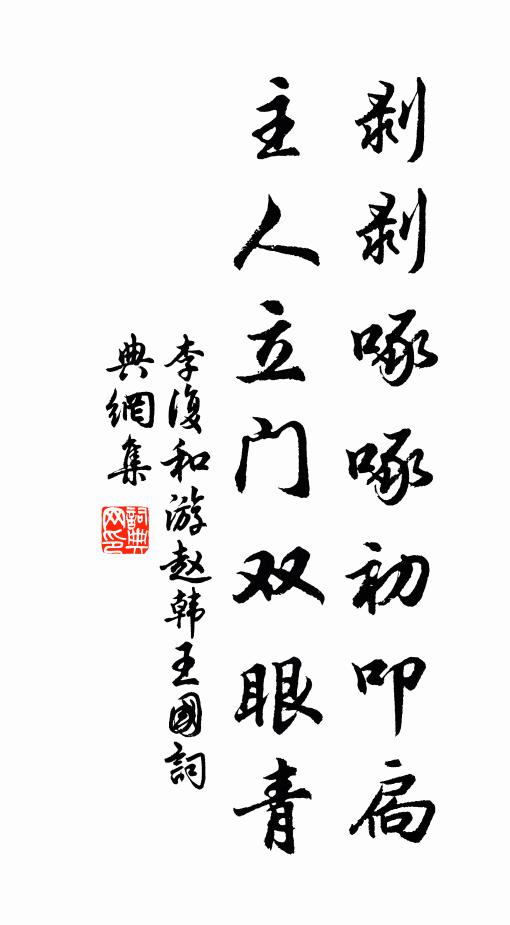 剥剥啄啄初叩扃
主人立门双眼青
李復和游赵韩王國詞
典網集
詞典网印